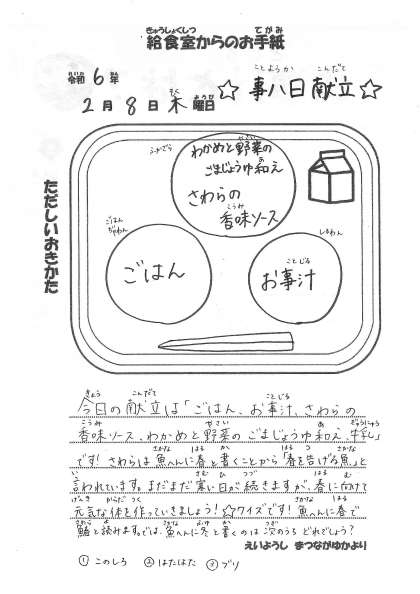 きゅうしょくしつ てがみ
給食室からのお手紙
れいわ ねん
令和 6 年
ことようか こんだて
☆ 事八日献立☆
がつ にち もく ようび
2 月 8 日 木 曜日
ただしいおきかた
ふかざら
やさい
わかめと野菜の
あ
ごまじょうゆ和え
さわらの
こうみ
香味ソース
ごはん
ぢゃわん
ごはん
しるわん
ことじる
お事汁
きょう こんだて ことじる
今日の献立は「ごはん、お事汁、さわらの
こうみ やさい あ ぎゅうにゅう
香味ソース、わかめと野菜のごまじょうゆ和え、牛乳」
さかな はる か はる つ さかな
です!さわらは魚へんに春と書くことから「春を告げる魚」と
い さむ ひ つづ はる む
言われています。まだまだ寒い日が続きますが、春に向けて
げんき からだ つく さかな はる
元気な体を作っていきましょう!☆クイズです!魚へんに春で
さわら よ さかな ふゆ か つぎ
鰆と読みます。では、魚へんに冬と書くのは次のうちどれでしょう?
えいようし まつながゆかより
① このしろ ② はたはた ③ ブリ